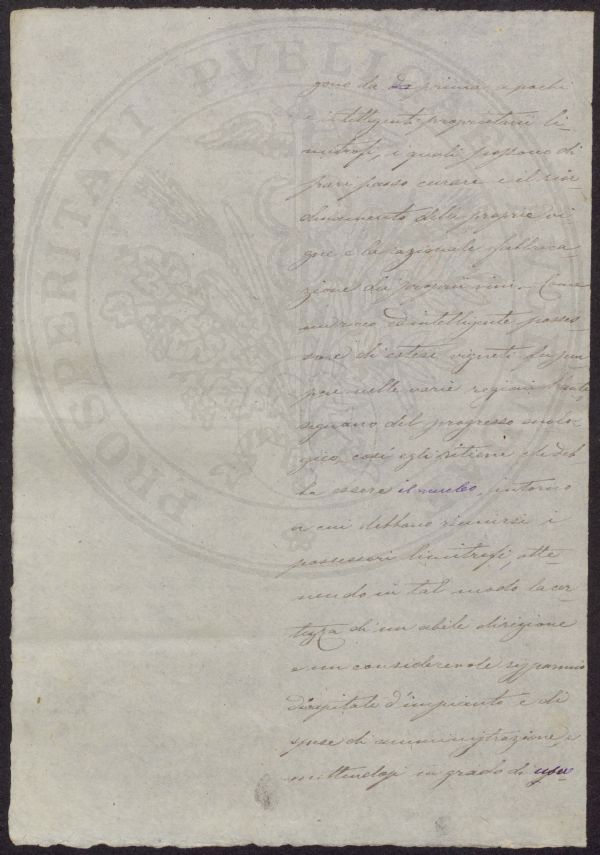 PROSPERITATI PVBLICAE
gono da da prima a pochi
e intelligenti proprietarii li-
mitrofi, i quali possono di
pari passo curare e il rior-
dinamento delle proprie vi-
gne e la razionale fabbrica-
zione dei proprii vini. - Come
un ricco ed intelligente posses-
sore di estesi vigneti fu sem
pre nelle varie regioni l'ante
signano del progresso enolo-
gico, così egli ritiene che deb-
ba essere il nucleo, intorno
a cui debbano riunirsi i
possessori limitrofi, otte-
nendo in tal modo la cer-
tezza di un abile direzione
e un considerevole risparmio
di capitale d'impianto e di
spese di amministrazione, e
mettendosi in grado di